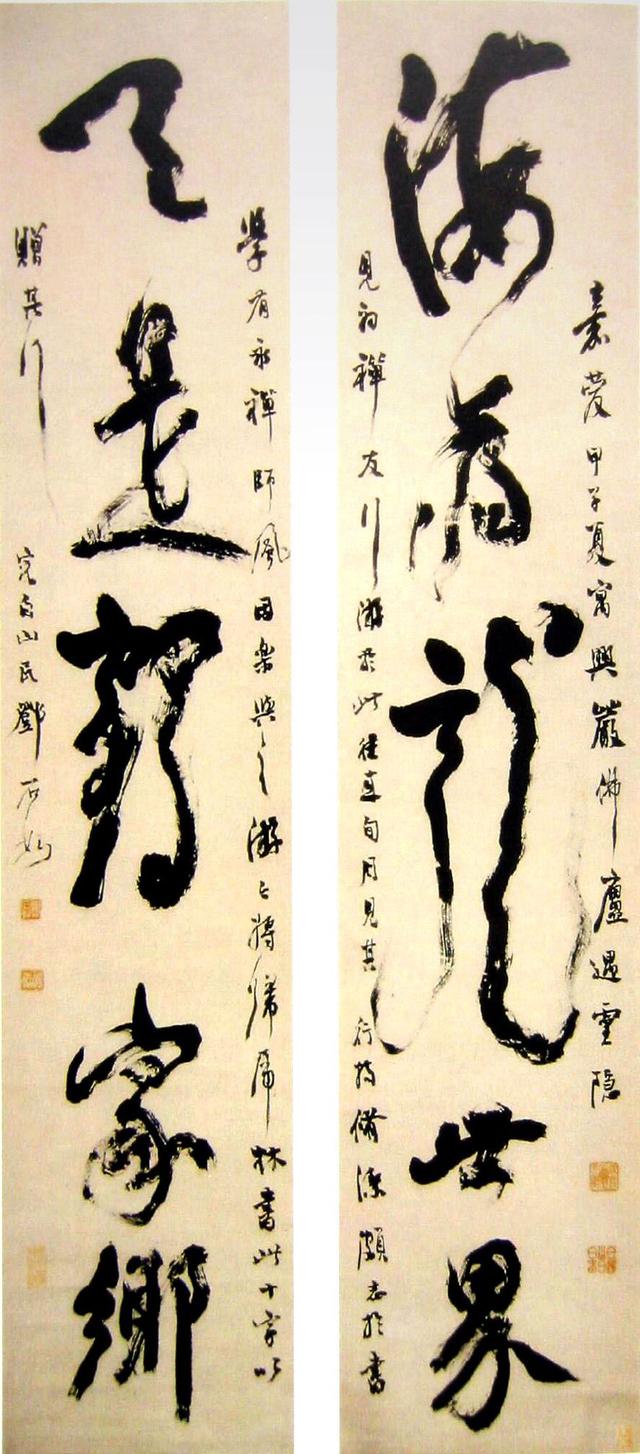 嘉慶甲子夏寓興嚴佛廬遇雲隱
海為龍世界
見初禪友行游於此往直旬月見其行持脩潔頗志於書
學有永禪師風因樂與之游將歸虎林書此十字以
天是鶴家鄉
贈其行 完白山民鄧石如